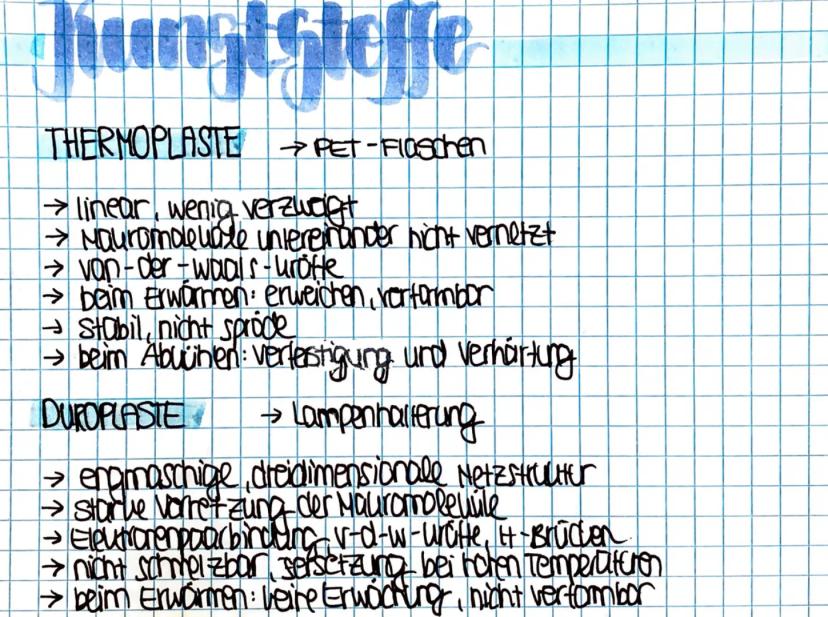 Kunststoffe
THERMOPLASTE → PET-Flaschen
→ linear, wenig verzweigt
→ Makromoleküle untereinander nicht vernetzt
→ van-der-waals-kräfte
→ beim Erwärmen: erweichen, verformbar
→ stabil, nicht spröde
→ beim Abkühlen: verfestigung und Verhärtung
DUROPLASTE → Lampenhalterung
→ engmaschige, dreidimensionale Netzstruktur
→ starke Vernetzung der Makromoleküle
→ Elektronenpaarbindung v-d-w-kräfte, H-Brücken
→ nicht schmelzbar, zersetzung bei hohen Temperaturen
→ beim Erwärmen: keine, nicht verformbar